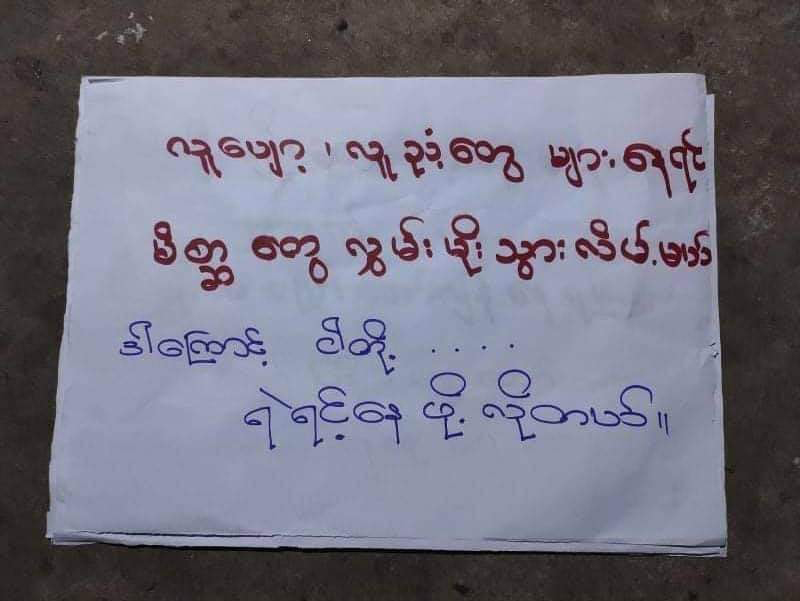 လူပျော့၊ လူညံ့တွေ များနေရင်
မိစ္ဆာတွေ လွှမ်းမိုးသွားလိမ့်မယ်
ဒါကြောင့် ငါတို့ ....
ရဲရင့်နေ ဖို့ လိုတယ်။